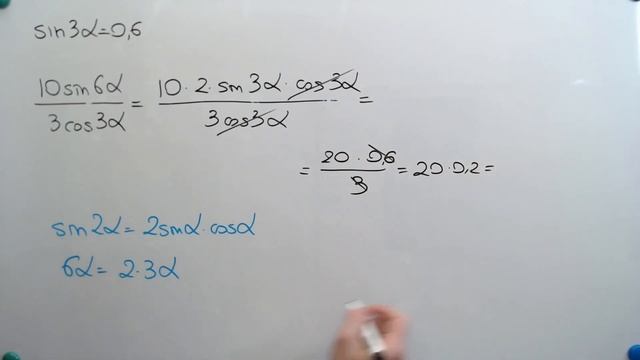 sin3α=0,6
10sin6α / 3cos3α = 10·2·sin3α·cos3α / 3cos3α =
= 20·0,6 / 3 = 20·0,2=
sin2α=2sinα·cosα
6α=2·3α